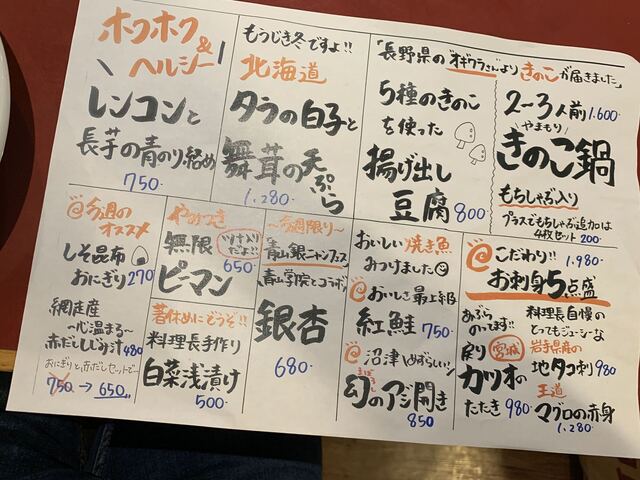 ホクホク
&
ヘルシー
レンコンと
長芋の青のり絡め
750-
もうじき冬ですよ!!
北海道
タラの白子と
舞茸の天ぷら
1,280-
「長野県の"オギワラさん"より きのこが届きました」
5種のきのこ
を使った
揚げ出し
豆腐 800
2~3人前 1,600-
やまもり
きのこ鍋
もちしゃぶ入り
プラスでもちしゃぶ追加は
4枚セット 200-
@今週の
オススメ
しそ昆布
おにぎり 270
網走産
~心温まる~
赤だししじみ汁 480
おにぎりと赤だしセットで
750 → 650
やみつき
無限
ツナ入り
だよ!!
ピーマン 650
箸休めにどうぞ!!
料理長手作り
白菜浅漬け
500-
~今週限り~
青山銀ナンフェス
青山学院とコラボ
銀杏
680-
おいしい焼き魚
みつけました
@おいしさ最上級
紅鮭 750-
@沼津 ~めずらしい~
まぼろし
幻のアジ開き
850
@こだわり!! 1,980-
お刺身5点盛
あぶら
のってます!!
戻り 宮城
カツオの
たたき 980-
料理長自慢の
とってもジューシーな
岩手県産の
地タコ刺 980
王道
マグロの赤身
1,280-